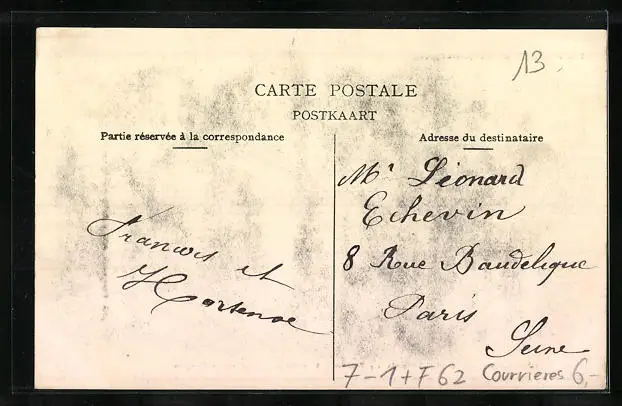 13.
CARTE POSTALE
POSTKAART
Partie réservée à la correspondance
Adresse du destinataire
Francois et
Hortense
Mr Léonard
Echevin
8 Rue Baudelique
Paris
Seine
7-1+F62 Courrieres 6,-